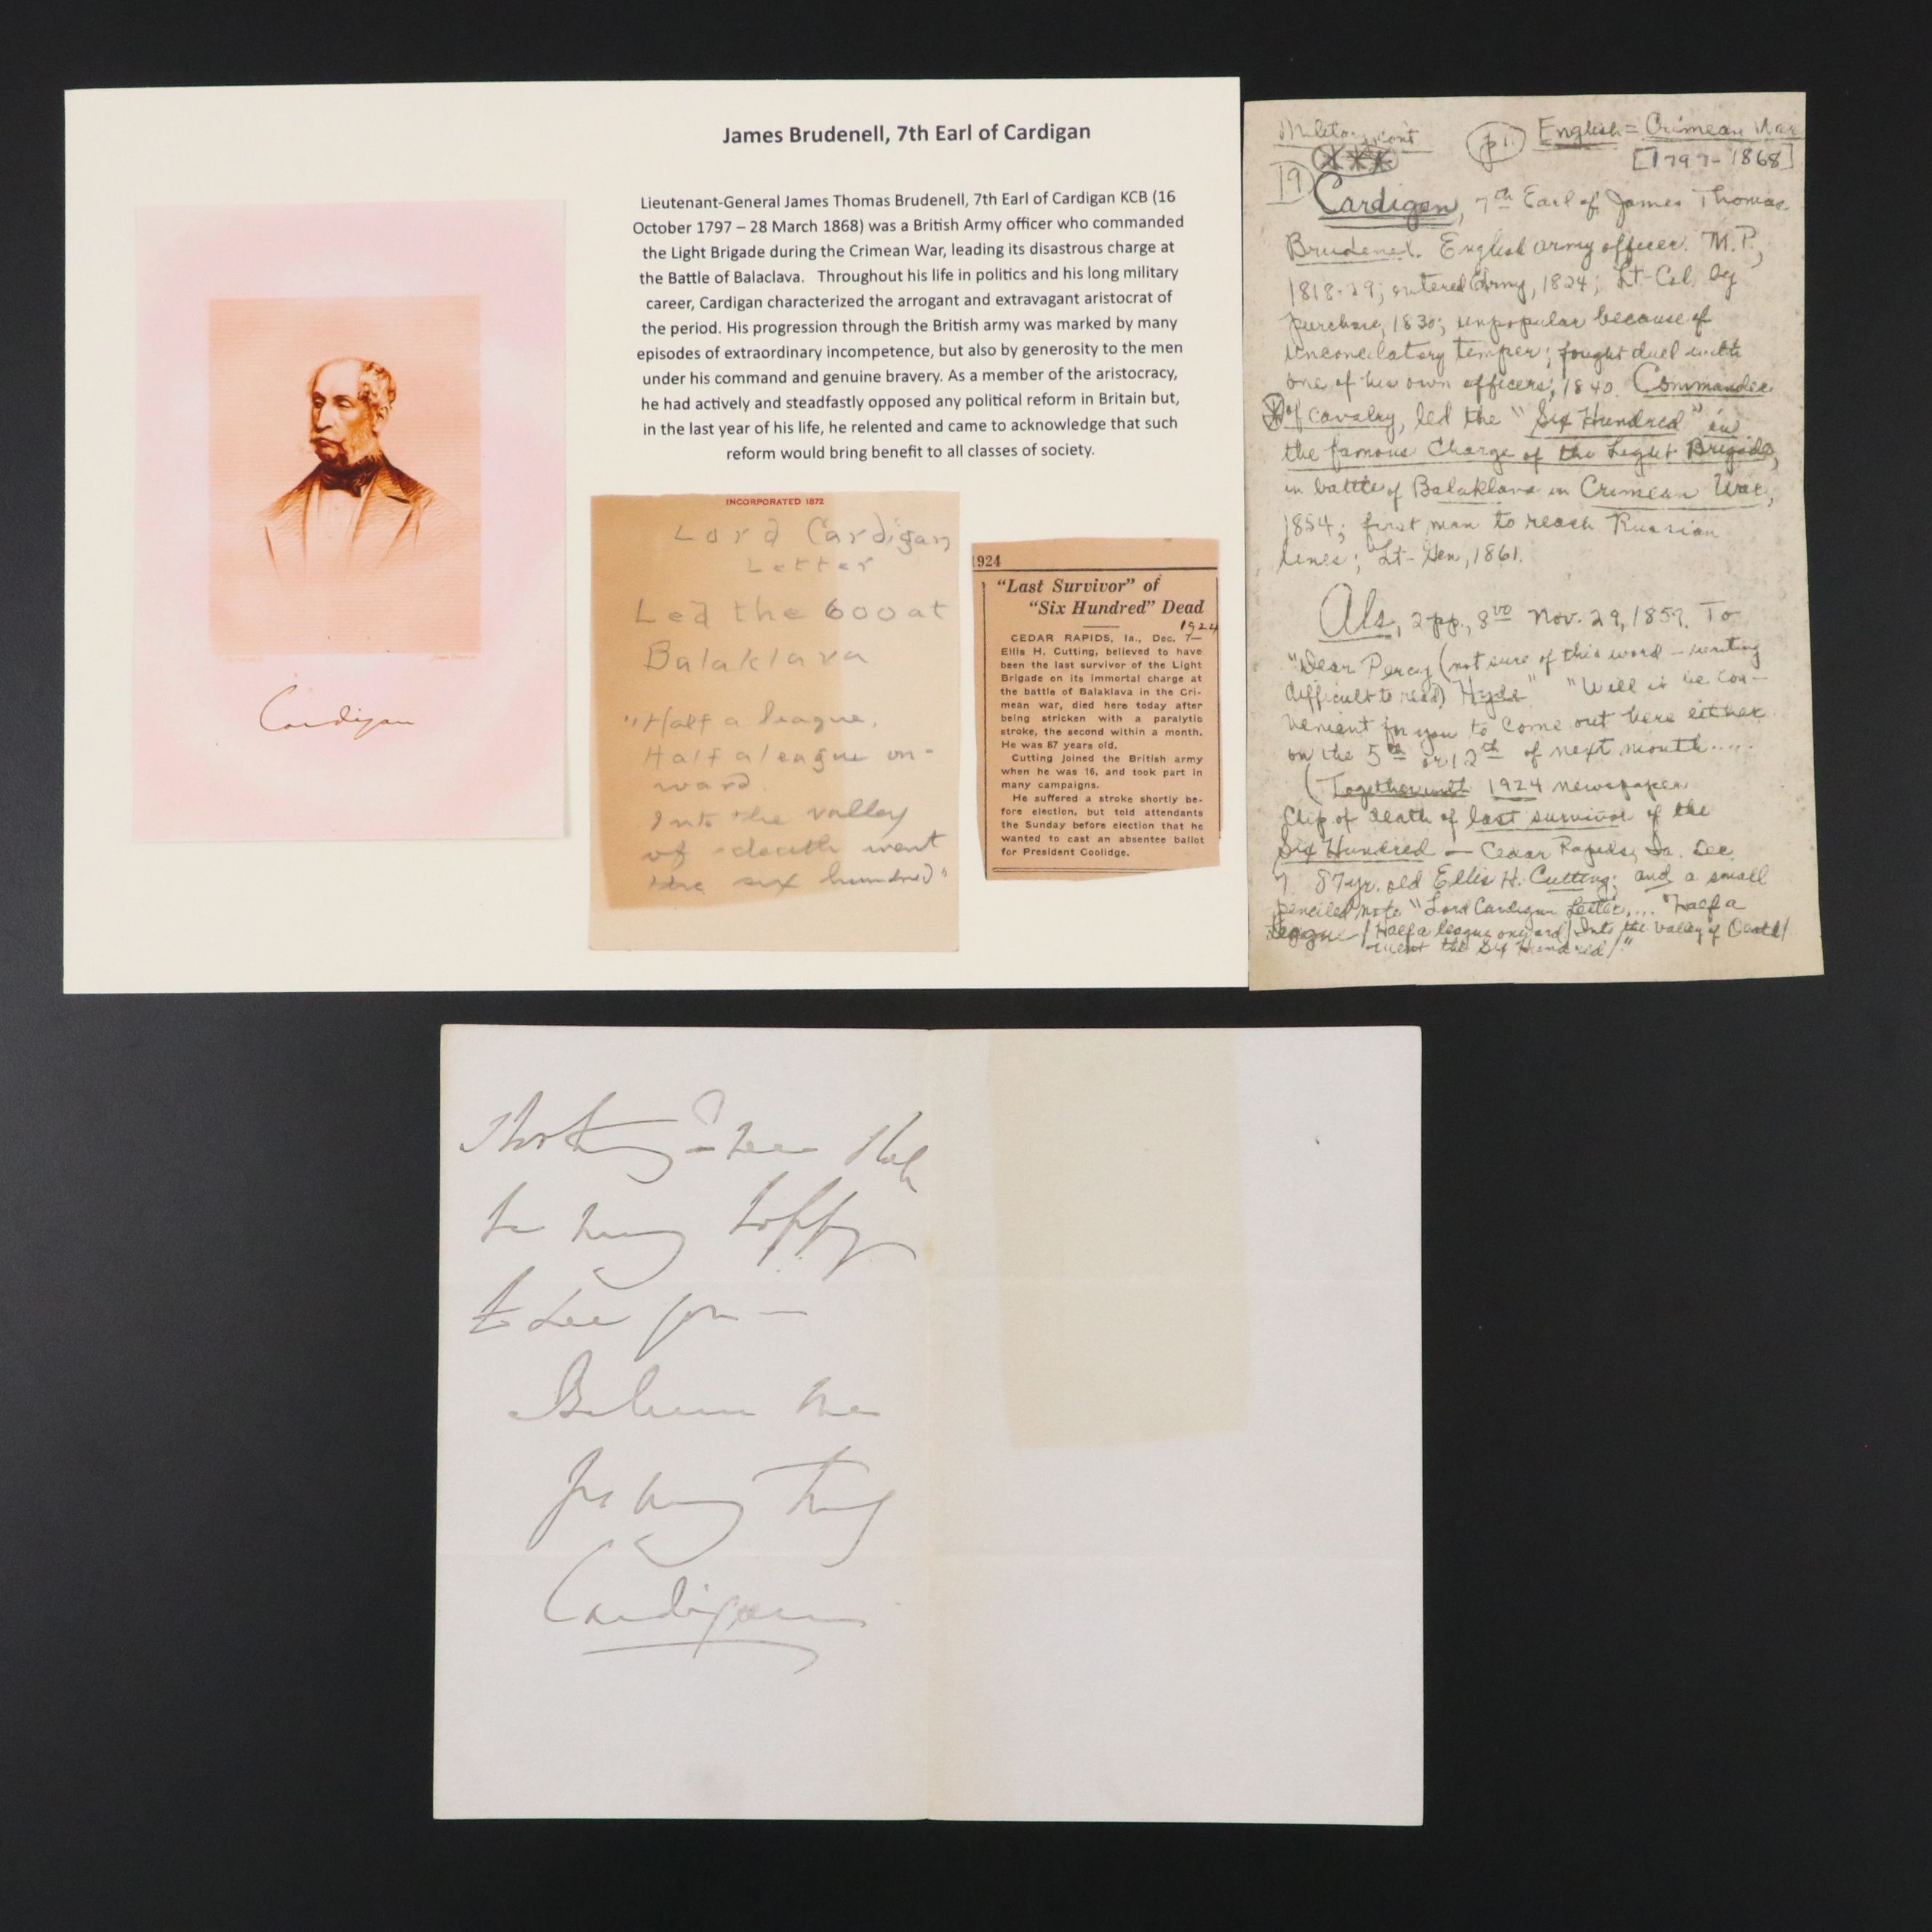 James Brudenell, 7th Earl of Cardigan
Lieutenant-General James Thomas Brudenell, 7th Earl of Cardigan KCB (16
October 1797 – 28 March 1868) was a British Army officer who commanded
the Light Brigade during the Crimean War, leading its disastrous charge at
the Battle of Balaclava. Throughout his life in politics and his long military
career, Cardigan characterized the arrogant and extravagant aristocrat of
the period. His progression through the British army was marked by many
episodes of extraordinary incompetence, but also by generosity to the men
under his command and genuine bravery. As a member of the aristocracy,
he had actively and steadfastly opposed any political reform in Britain but,
in the last year of his life, he relented and came to acknowledge that such
reform would bring benefit to all classes of society.
Cardigan
INCORPORATED 1872
Lord Cardigan
Letter
Led the 600 at
Balaklava
"Half a league,
Half a league on-
ward
Into the valley
of death went
the six hundred"
1924
"Last Survivor" of
"Six Hundred" Dead
1924
CEDAR RAPIDS, Ia., Dec. 7—
Ellis H. Cutting, believed to have
been the last survivor of the Light
Brigade on its immortal charge at
the battle of Balaklava in the Cri-
mean war, died here today after
being stricken with a paralytic
stroke, the second within a month.
He was 87 years old.
Cutting joined the British army
when he was 16, and took part in
many campaigns.
He suffered a stroke shortly be-
fore election, but told attendants
the Sunday before election that he
wanted to cast an absentee ballot
for President Coolidge.
cont p1. English = Crimean War
[1797-1868]
19 Cardigan, 7th Earl of, James Thomas
Brudenel. English army officer. M.P.,
1818-29; entered Army, 1824; Lt-Col. by
purchase, 1830; unpopular because of
unconcilatory temper; fought duel with
one of his own officers, 1840. Commander
of cavalry, led the "Six Hundred" in
the famous Charge of the Light Brigade,
in battle of Balaklava in Crimean War,
1854; first man to reach Russian
lines; Lt-Gen, 1861.
Als, 2pp., 8vo Nov. 29, 1859. To
"Dear Percy (not sure of this word - writing
difficult to read) Hyde" "Will it be con-
venient for you to come out here either
on the 5th or 12th of next month....
(Together with 1924 newspaper
Clip of death of last survivor of the
Six Hundred — Cedar Rapids, Ia. Dec.
7. 87 yr. old Ellis H. Cutting; and a small
penciled note "Lord Cardigan Letter,... "Half a
league / Half a league onward / Into the valley of Death /
went the Six Hundred/."
be very happy
to see you —
Believe me
Yrs very truly
Cardigan